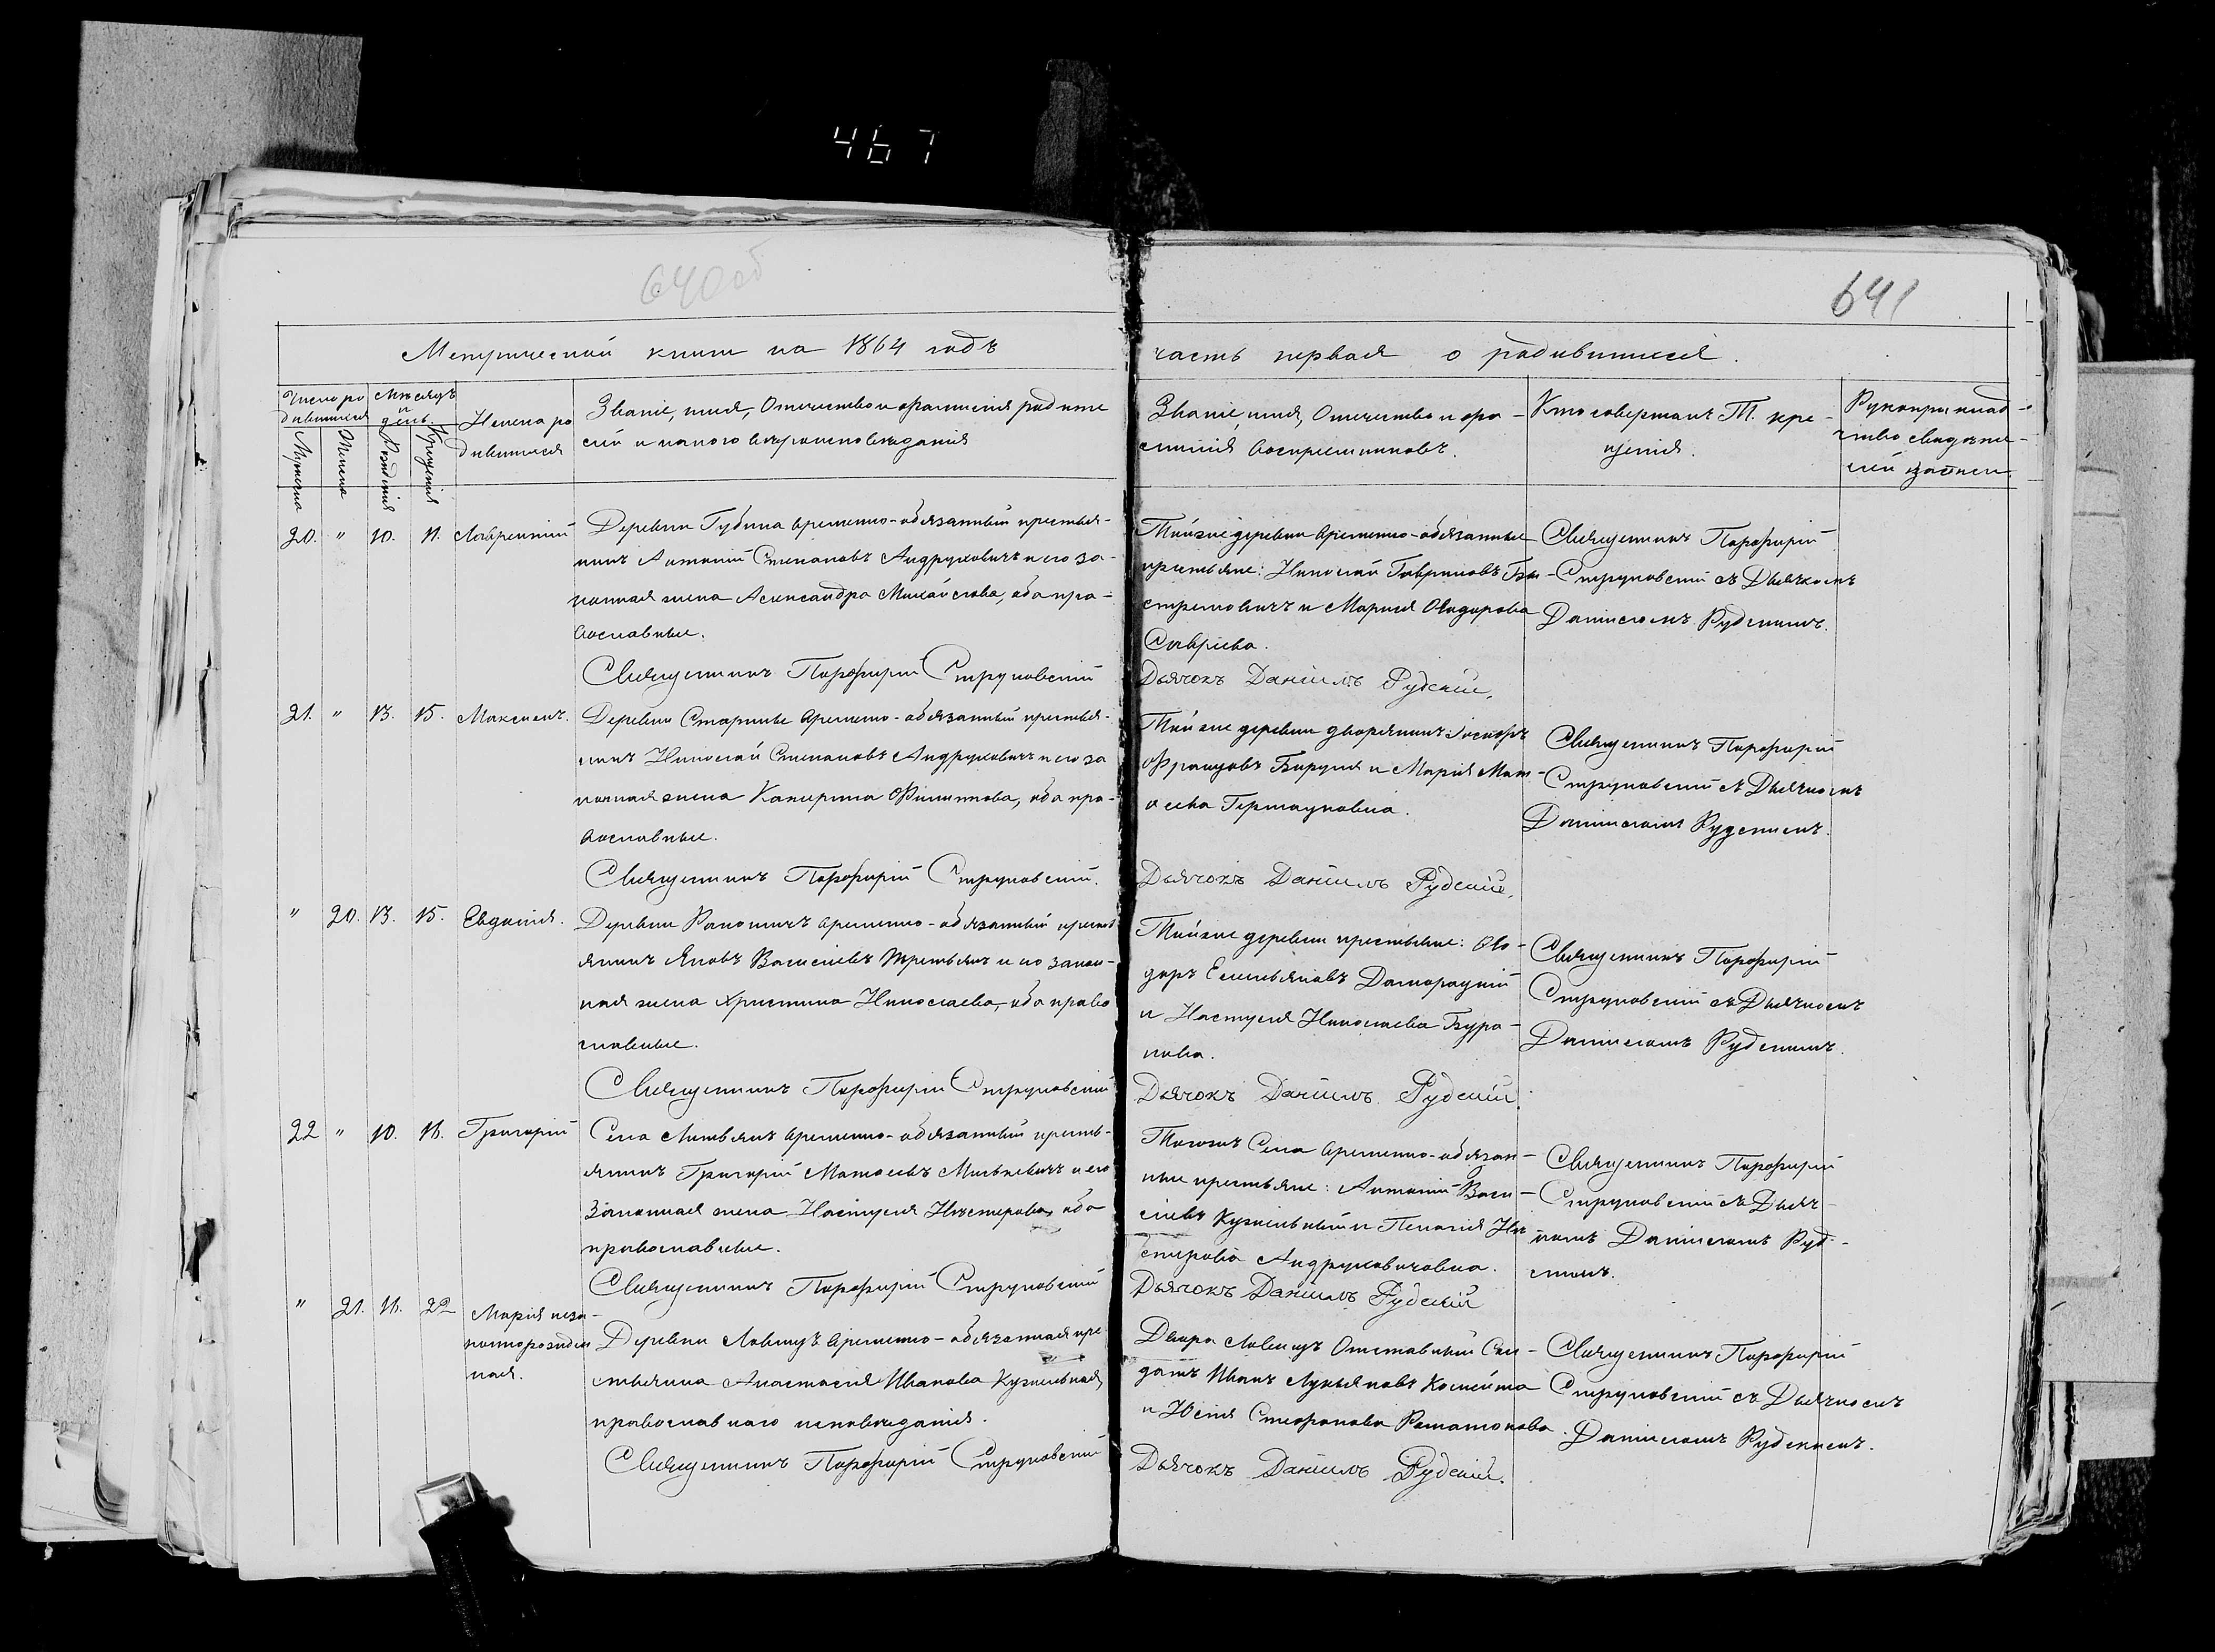 467
640об
641
Метрической книги на 1864 годъ
часть первая о родившихся.
Число ро
дившихся
Мѣсяцъ
и
день.
Мужеска
Женска
Рожденія
Крещенія
Имена ро
дившихся
Званіе, имя, Отчество и фамилія родите
лей и какого вѣроисповѣданія
Званіе, имя, Отчество и фа-
милія воспріемниковъ.
Кто совершалъ Т. кре-
щенія.
Рукоприклад-
ство свидѣте-
лей записи.
20. " 10. 11. Лаврентій
Деревни Губина временно-обязанный крестья-
нинъ Антоній Степановъ Андруховичъ и его за-
конная жена Александра Михайлова, оба пра-
вославные.
Священникъ Порфирій Струковскій
Тойже деревни временно-обязанные
крестьяне: Николай Гавриловъ
и Марія Ѳедорова
Дьячокъ Даніилъ Рудскій.
Священникъ Порфирій
Струковскій съ Дьячкомъ
Даніиломъ Рудскимъ.
21. " 13. 15. Максимъ.
Деревни временно-обязанный крестья-
нинъ Николай Степановъ Андруховичъ и его за
конная жена Катерина Филиппова, оба пра-
вославные.
Священникъ Порфирій Струковскій.
Тойже деревни дворянинъ Іосифъ
Францовъ Бируля и Марія Мат-
ѳеева
Дьячокъ Даніилъ Рудскій.
Священникъ Порфирій
Струковскій съ Дьячкомъ
Даніиломъ Рудскимъ.
" 20. 13. 15. Евдокія.
Деревни временно-обязанный кресть
янинъ Яковъ Василіевъ Третьякъ и его закон-
ная жена Христина Николаева, оба право
славные.
Священникъ Порфирій Струковскій
Тойже деревни крестьяне: Ѳео-
доръ Емельяновъ Доморацкій
и Настуля Николаева Бура-
кова.
Дьячокъ Даніилъ Рудскій.
Священникъ Порфирій
Струковскій съ Дьячкомъ
Даніиломъ Рудскимъ.
22 " 10. 16. Григорій
Села Литвянъ временно-обязанный кресть-
янинъ Григорій Матѳеевъ Миськевичъ и его
законная жена Настуля Нестерова, оба
православные.
Священникъ Порфирій Струковскій
Тогожъ Села временно-обязан-
ные крестьяне: Антоній Васи-
лievъ Кужельный и Пелагія Не
стерова Андруховичовна.
Дьячокъ Даніилъ Рудскій
Священникъ Порфирій
Струковскій съ Дьяч-
комъ Даніиломъ Руд-
скимъ.
" 21. 16. 22 Марія неза-
коннорожден
ная.
Деревни Ловцы временно-обязанная кре
стьянка Анастасія Иванова Кужельная,
православнаго исповѣданія.
Священникъ Порфирій Струковскій
Двора Отставный Сол-
датъ Иванъ Лукьяновъ
и Юлія Стефанова
Дьячокъ Даніилъ Рудскій.
Священникъ Порфирій
Струковскій съ Дьячкомъ
Даніиломъ Рудскимъ.